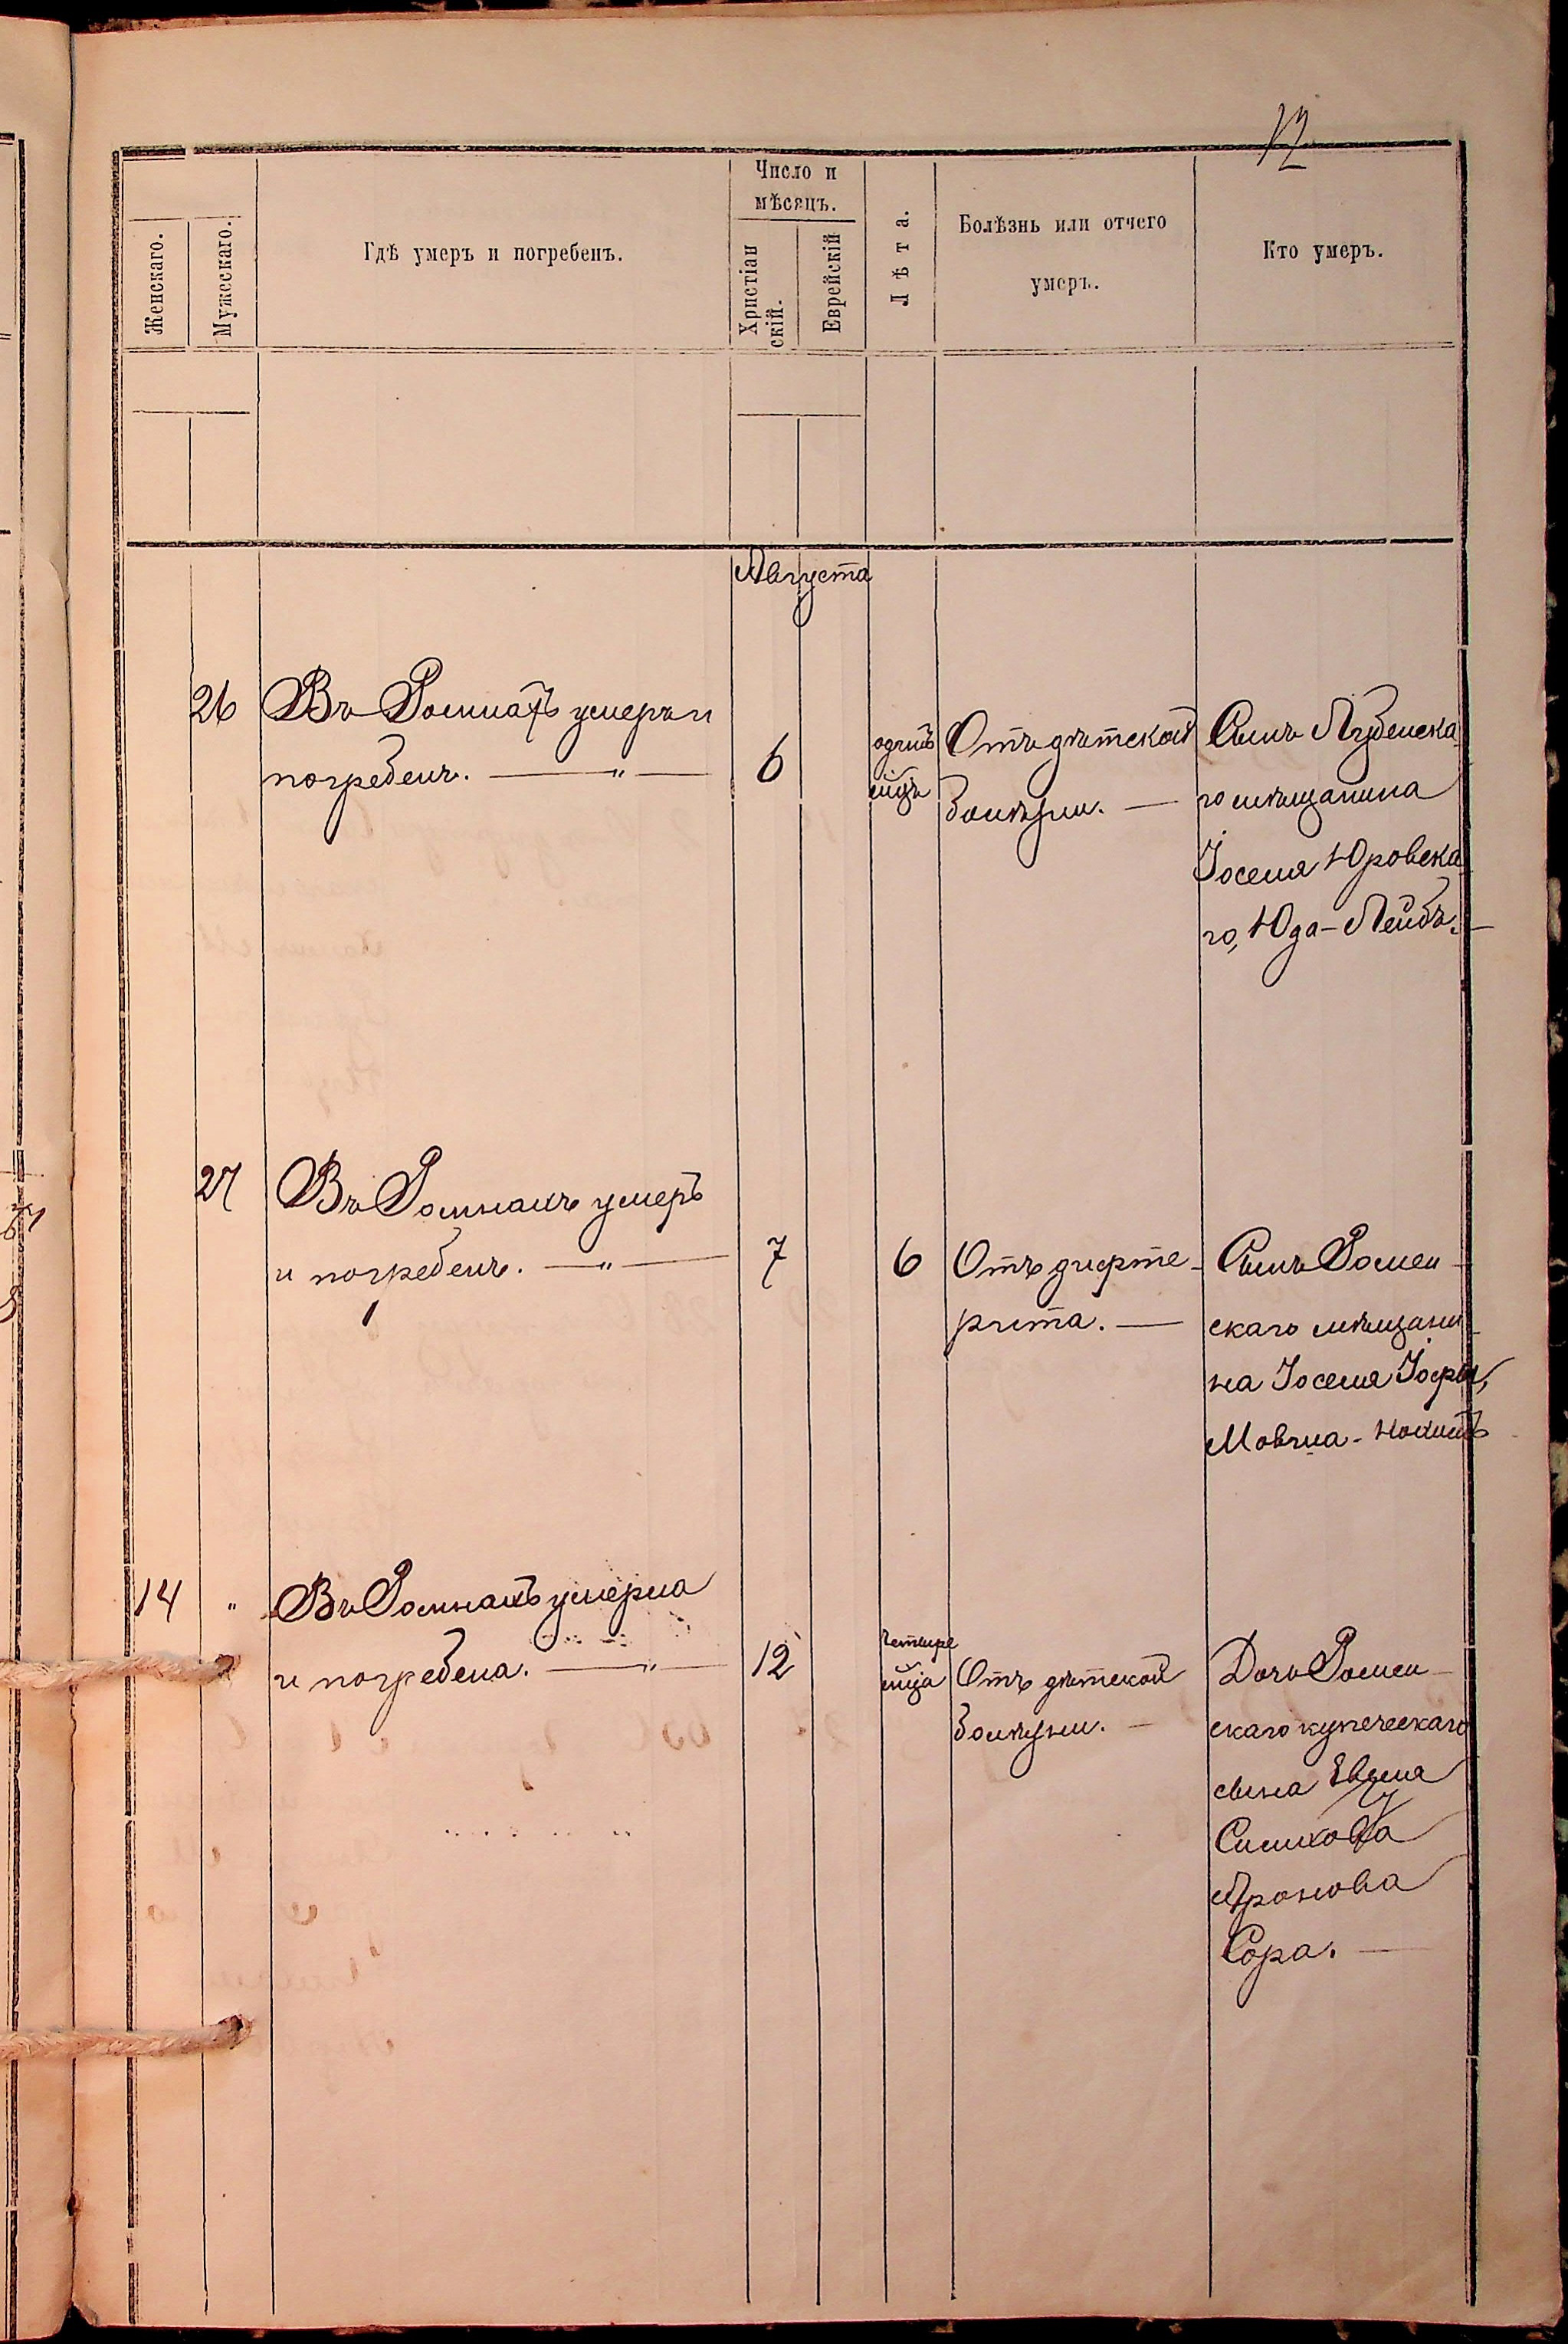 12
Женскаго.
Мужескаго.
Гдѣ умеръ и погребенъ.
Число и
мѣсяцъ.
Христіан
скій.
Еврейскій
Лѣта.
Болѣзнь или отчего
умеръ.
Кто умеръ.
Августа
26
Въ Ромнахъ умеръ и
погребенъ. — " —
6
одинъ
мцъ
Отъ дѣтской
болѣзни. —
Сынъ Лубенска-
го мѣщанина
Іоселя Юровска
го, Юда-Лейбъ. —
27
Въ Ромнахъ умеръ
и погребенъ. — " —
7
6
Отъ дифте-
рита. —
Сынъ Ромен-
скаго мѣщани-
на Іоселя Іофы,
Мовша-Нохимъ
14
"
Въ Ромнахъ умерла
и погребена. — " —
12
четыре
мца
Отъ дѣтской
болѣзни. —
Дочь Ромен-
скаго купеческаго
сына
Аронова
Сора. —